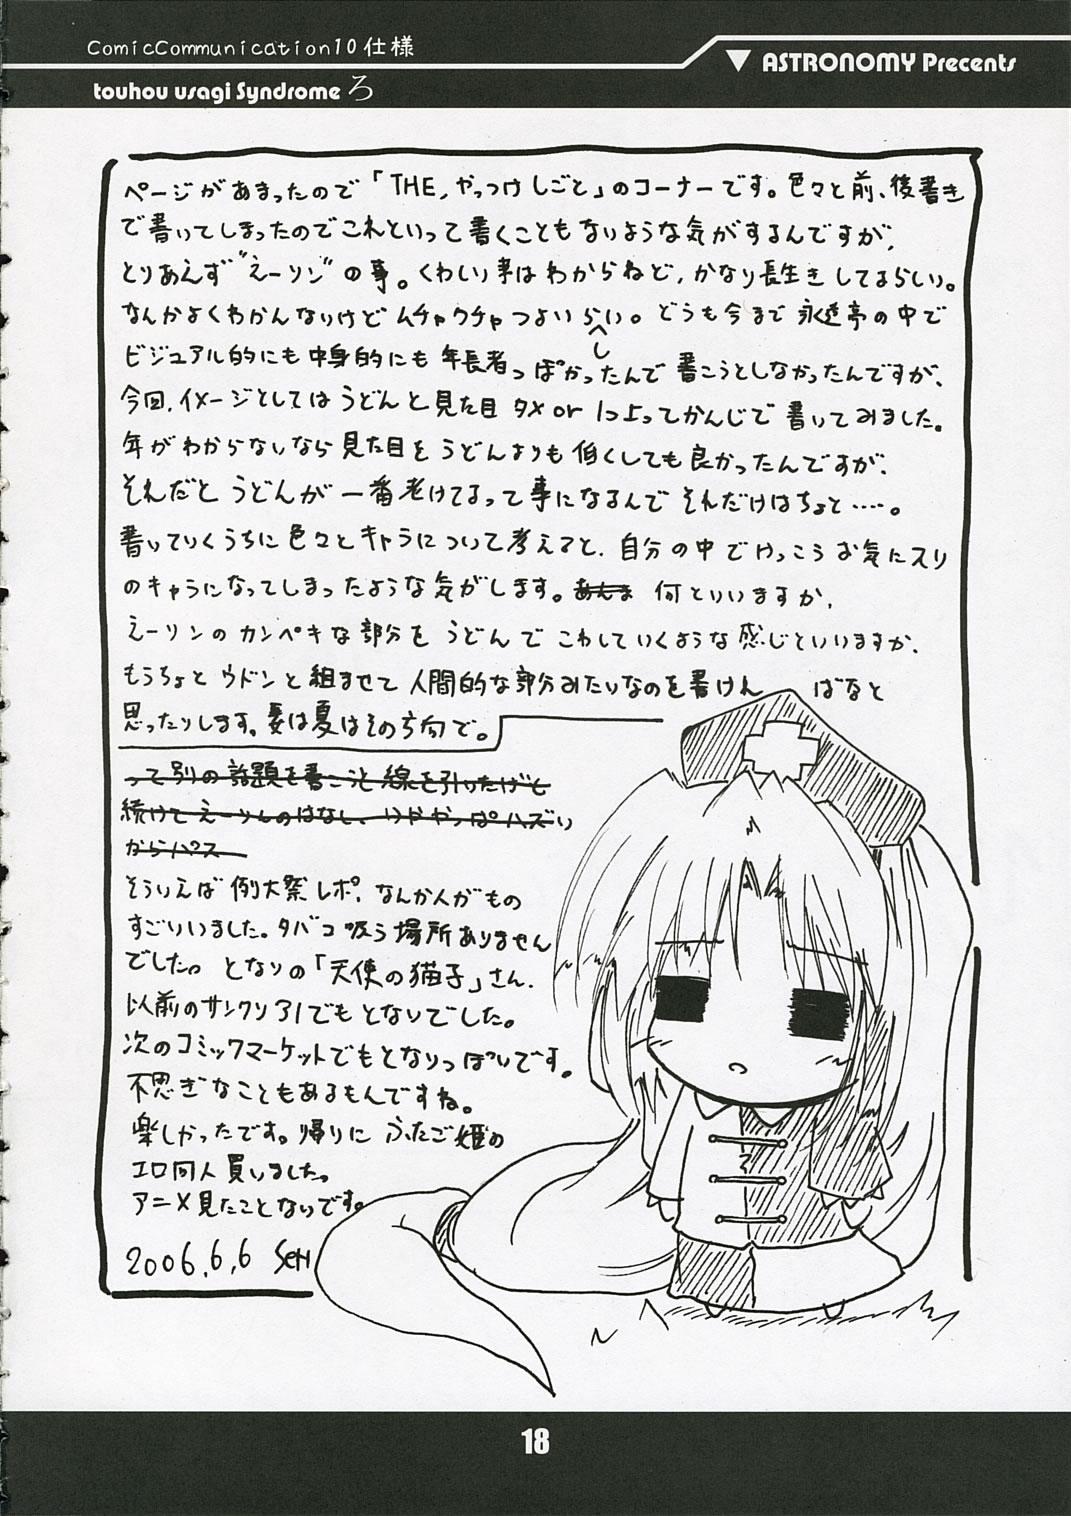 ComicCommunication10仕様
touhou usagi Syndromeろ
▼ ASTRONOMY Precents
ページがあまったので「THE,やっつけしごと」のコーナーです。色々と前、後書き
で書いてしまったのでこれといって書くこともないような気がするんですが、
とりあえず"えーリン"の事。くわしい事はわからねど、かなり長生きしてるらしい。
なんかよくわかんないけどムチャクチャつよいらしい。どうも今まで永遠亭の中で
ビジュアル的にも中身的にも年長者っぽかったんで書こうとしなかったんですが、
今回、イメージとしてはうどんと見た目タメor1コ上ってかんじで書いてみました。
年がわからないなら見た目をうどんよりも低くしても良かったんですが、
それだとうどんが一番老けてるって事になるんでそれだけはちょと……。
書いていくうちに色々とキャラについて考えてと、自分の中でけっこうお気にスリ
のキャラになってしまったような気がします。あんま 何といいますか、
えーリンのカンペキな部分をうどんでこわしていくような感じといいますか、
もうちょとウドンと組ませて人間的な部分みたいなのを書けんばなと
思ったりします。妻は夏はその方向で。
って別の話題を書こうと線を引いたけど
続けてえーりんのはなし、いややっぱハズい
からパス
そういえば例大祭レポ、なんか人がもの
すごいいました。タバコ吸う場所ありません
でした。となりの「天使の猫子」さん、
以前のサンクリ31でもとなりでした。
次のコミックマーケットでもとなりっぽいです。
不思ぎなこともあるもんですね。
楽しかったです。帰りにふたご姫の
エロ同人買いました。
アニメ見たことないです。
2006,6,6 SEN
18